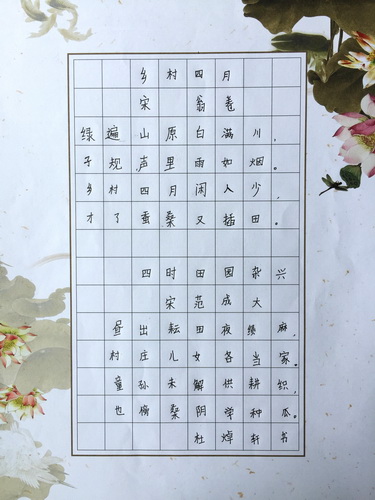 乡村四月
宋 翁卷
绿遍山原白满川,
子规声里雨如烟。
乡村四月闲人少,
才了蚕桑又插田。
四时田园杂兴
宋范成大
昼出耘田夜绩麻,
村庄儿女各当家。
童孙未解供耕织,
也傍桑阴学种瓜。
杜焯轩书